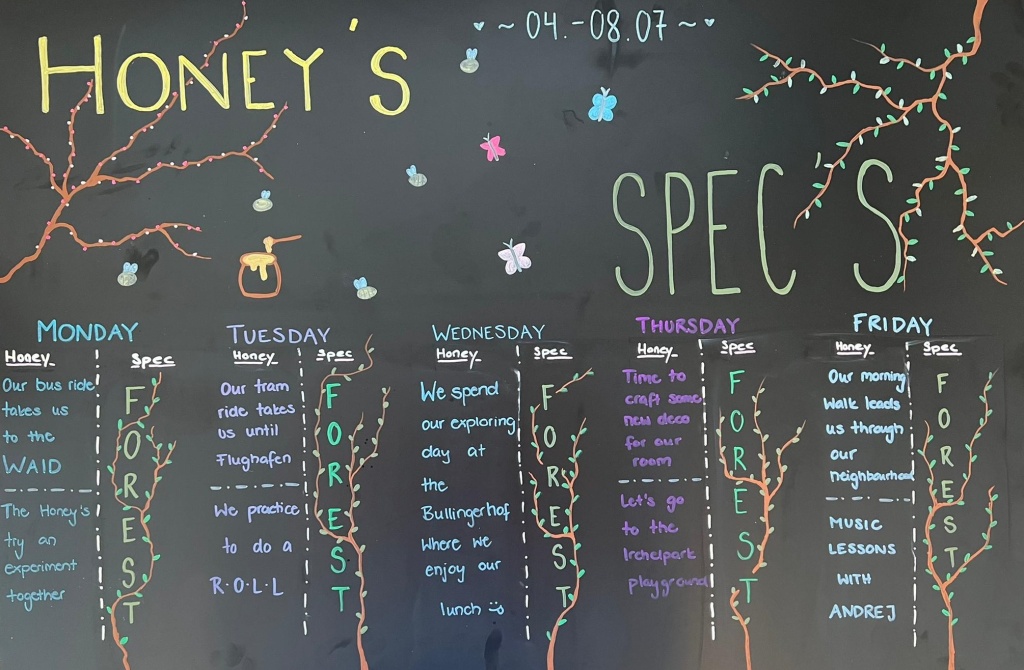 ~ 04.-08.07 ~
HONEY'S
SPEC'S
MONDAY
Honey
Our bus ride
takes us
to the
WAID
The Honey's
try an
experiment
together
Spec
FOREST
TUESDAY
Honey
Our tram
ride takes
us until
Flughafen
We practice
to do a
R·O·L·L
Spec
FOREST
WEDNESDAY
Honey
We spend
our exploring
day at
the
Bullingerhof
Where we
enjoy our
lunch :)
Spec
FOREST
THURSDAY
Honey
Time to
craft some
new deco
for our
room
Let's go
to the
Irchelpark
playground
Spec
FOREST
FRIDAY
Honey
Our morning
Walk leads
us through
our
neighbourhood
MUSIC
LESSONS
WITH
ANDREJ
Spec
FOREST